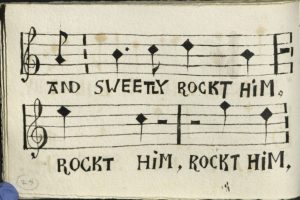 AND SWEETLY ROCKT HIM.
ROCKT HIM, ROCKT HIM,